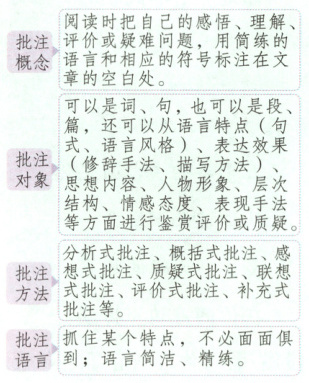 批注
概念
阅读时把自己的感悟、理解、
评价或疑难问题，用简练的
语言和相应的符号标注在文
章的空白处。
批注
对象
可以是词、句，也可以是段、
篇，还可以从语言特点（句
式、语言风格）、表达效果
（修辞手法、描写方法）、
思想内容、人物形象、层次
结构、情感态度、表现手法
等方面进行鉴赏评价或质疑。
批注
方法
分析式批注、概括式批注、感
想式批注、质疑式批注、联想
式批注、评价式批注、补充式
批注等。
批注
语言
抓住某个特点，不必面面俱
到；语言简洁、精练。